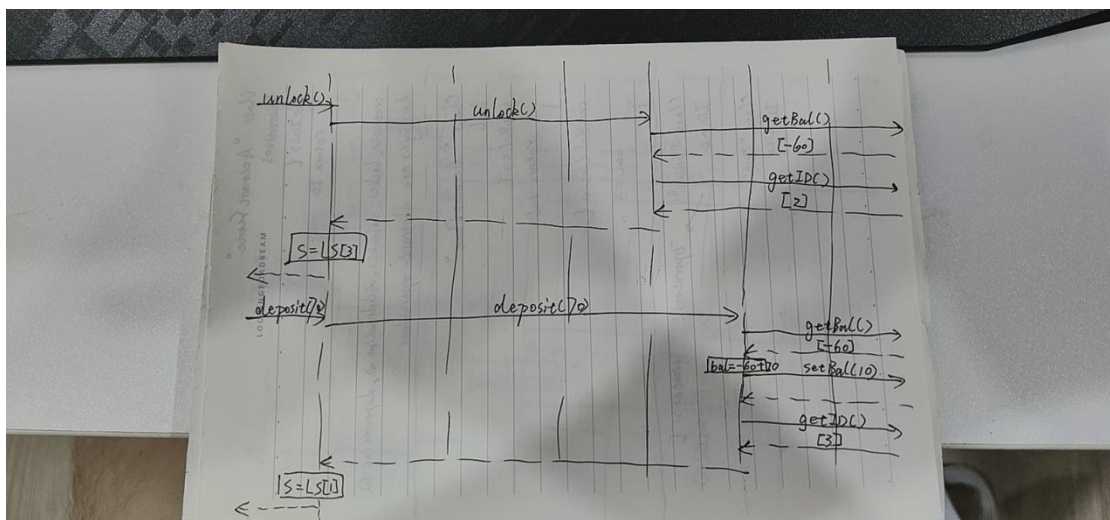 unlock()
unlock()
getBal()
[-60]
getID()
[2]
S=LS[3]
deposit(70)
deposit(70)
getBal()
[-60]
bal=-60+70
setBal(10)
getID()
[3]
S=LS[1]